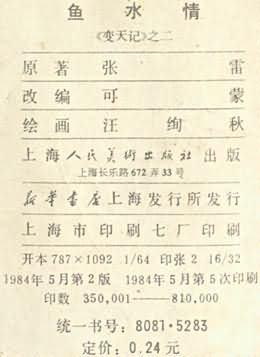 鱼水情
《变天记》之二
原著 张雷
改编 可蒙
绘画 汪绚秋
上海人民美术出版社出版
上海长乐路672弄33号
新华书店上海发行所发行
上海市印刷七厂印刷
开本787×1092 1/64 印张2 16/32
1984年5月第2版 1984年5月第5次印刷
印数 350,001——810,000
统一书号:8081·5283
定价:0.24元